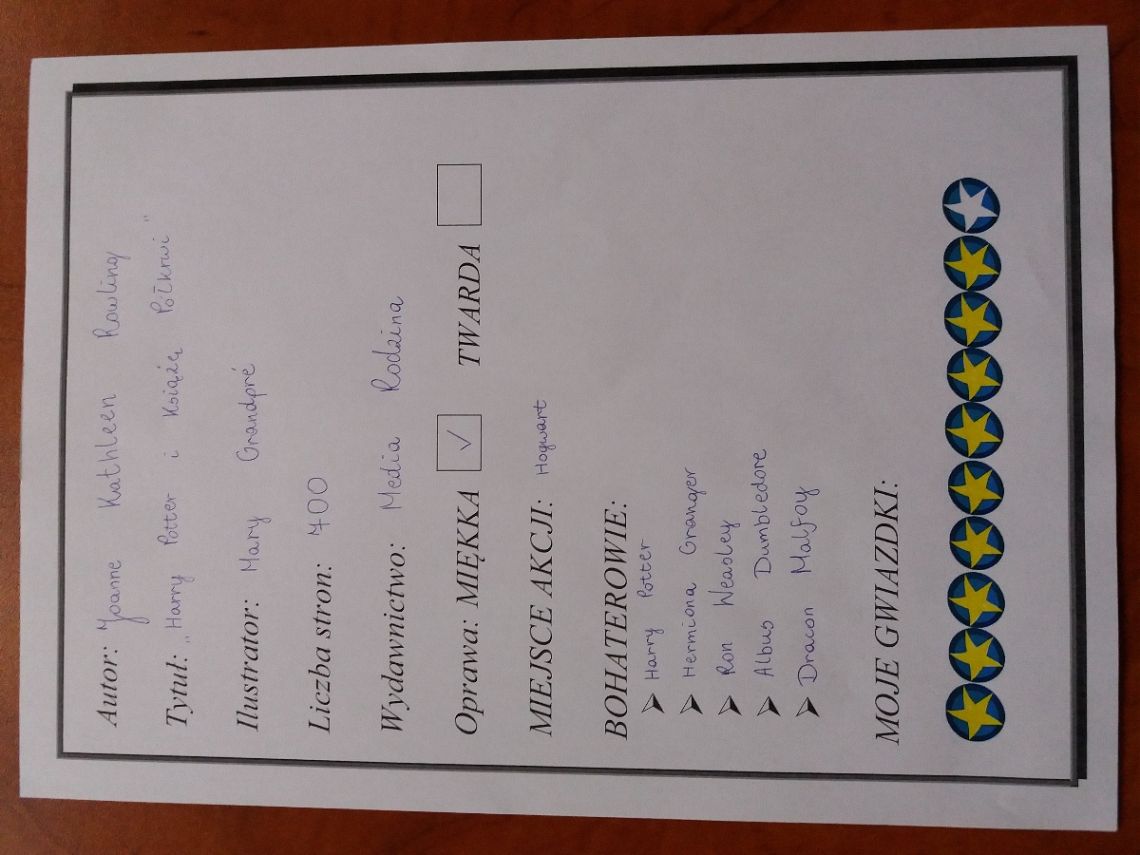 Autor: Joanne Kathleen Rowling
Tytuł: „Harry Potter i Książę Półkrwi"
Ilustrator: Mary Grandpré
Liczba stron: 700
Wydawnictwo: Media Rodzina
Oprawa: MIĘKKA ✓ TWARDA
MIEJSCE AKCJI: Hogwart
BOHATEROWIE:
➤ Harry Potter
➤ Hermiona Granger
➤ Ron Weasley
➤ Albus Dumbledore
➤ Dracon Malfoy
MOJE GWIAZDKI: